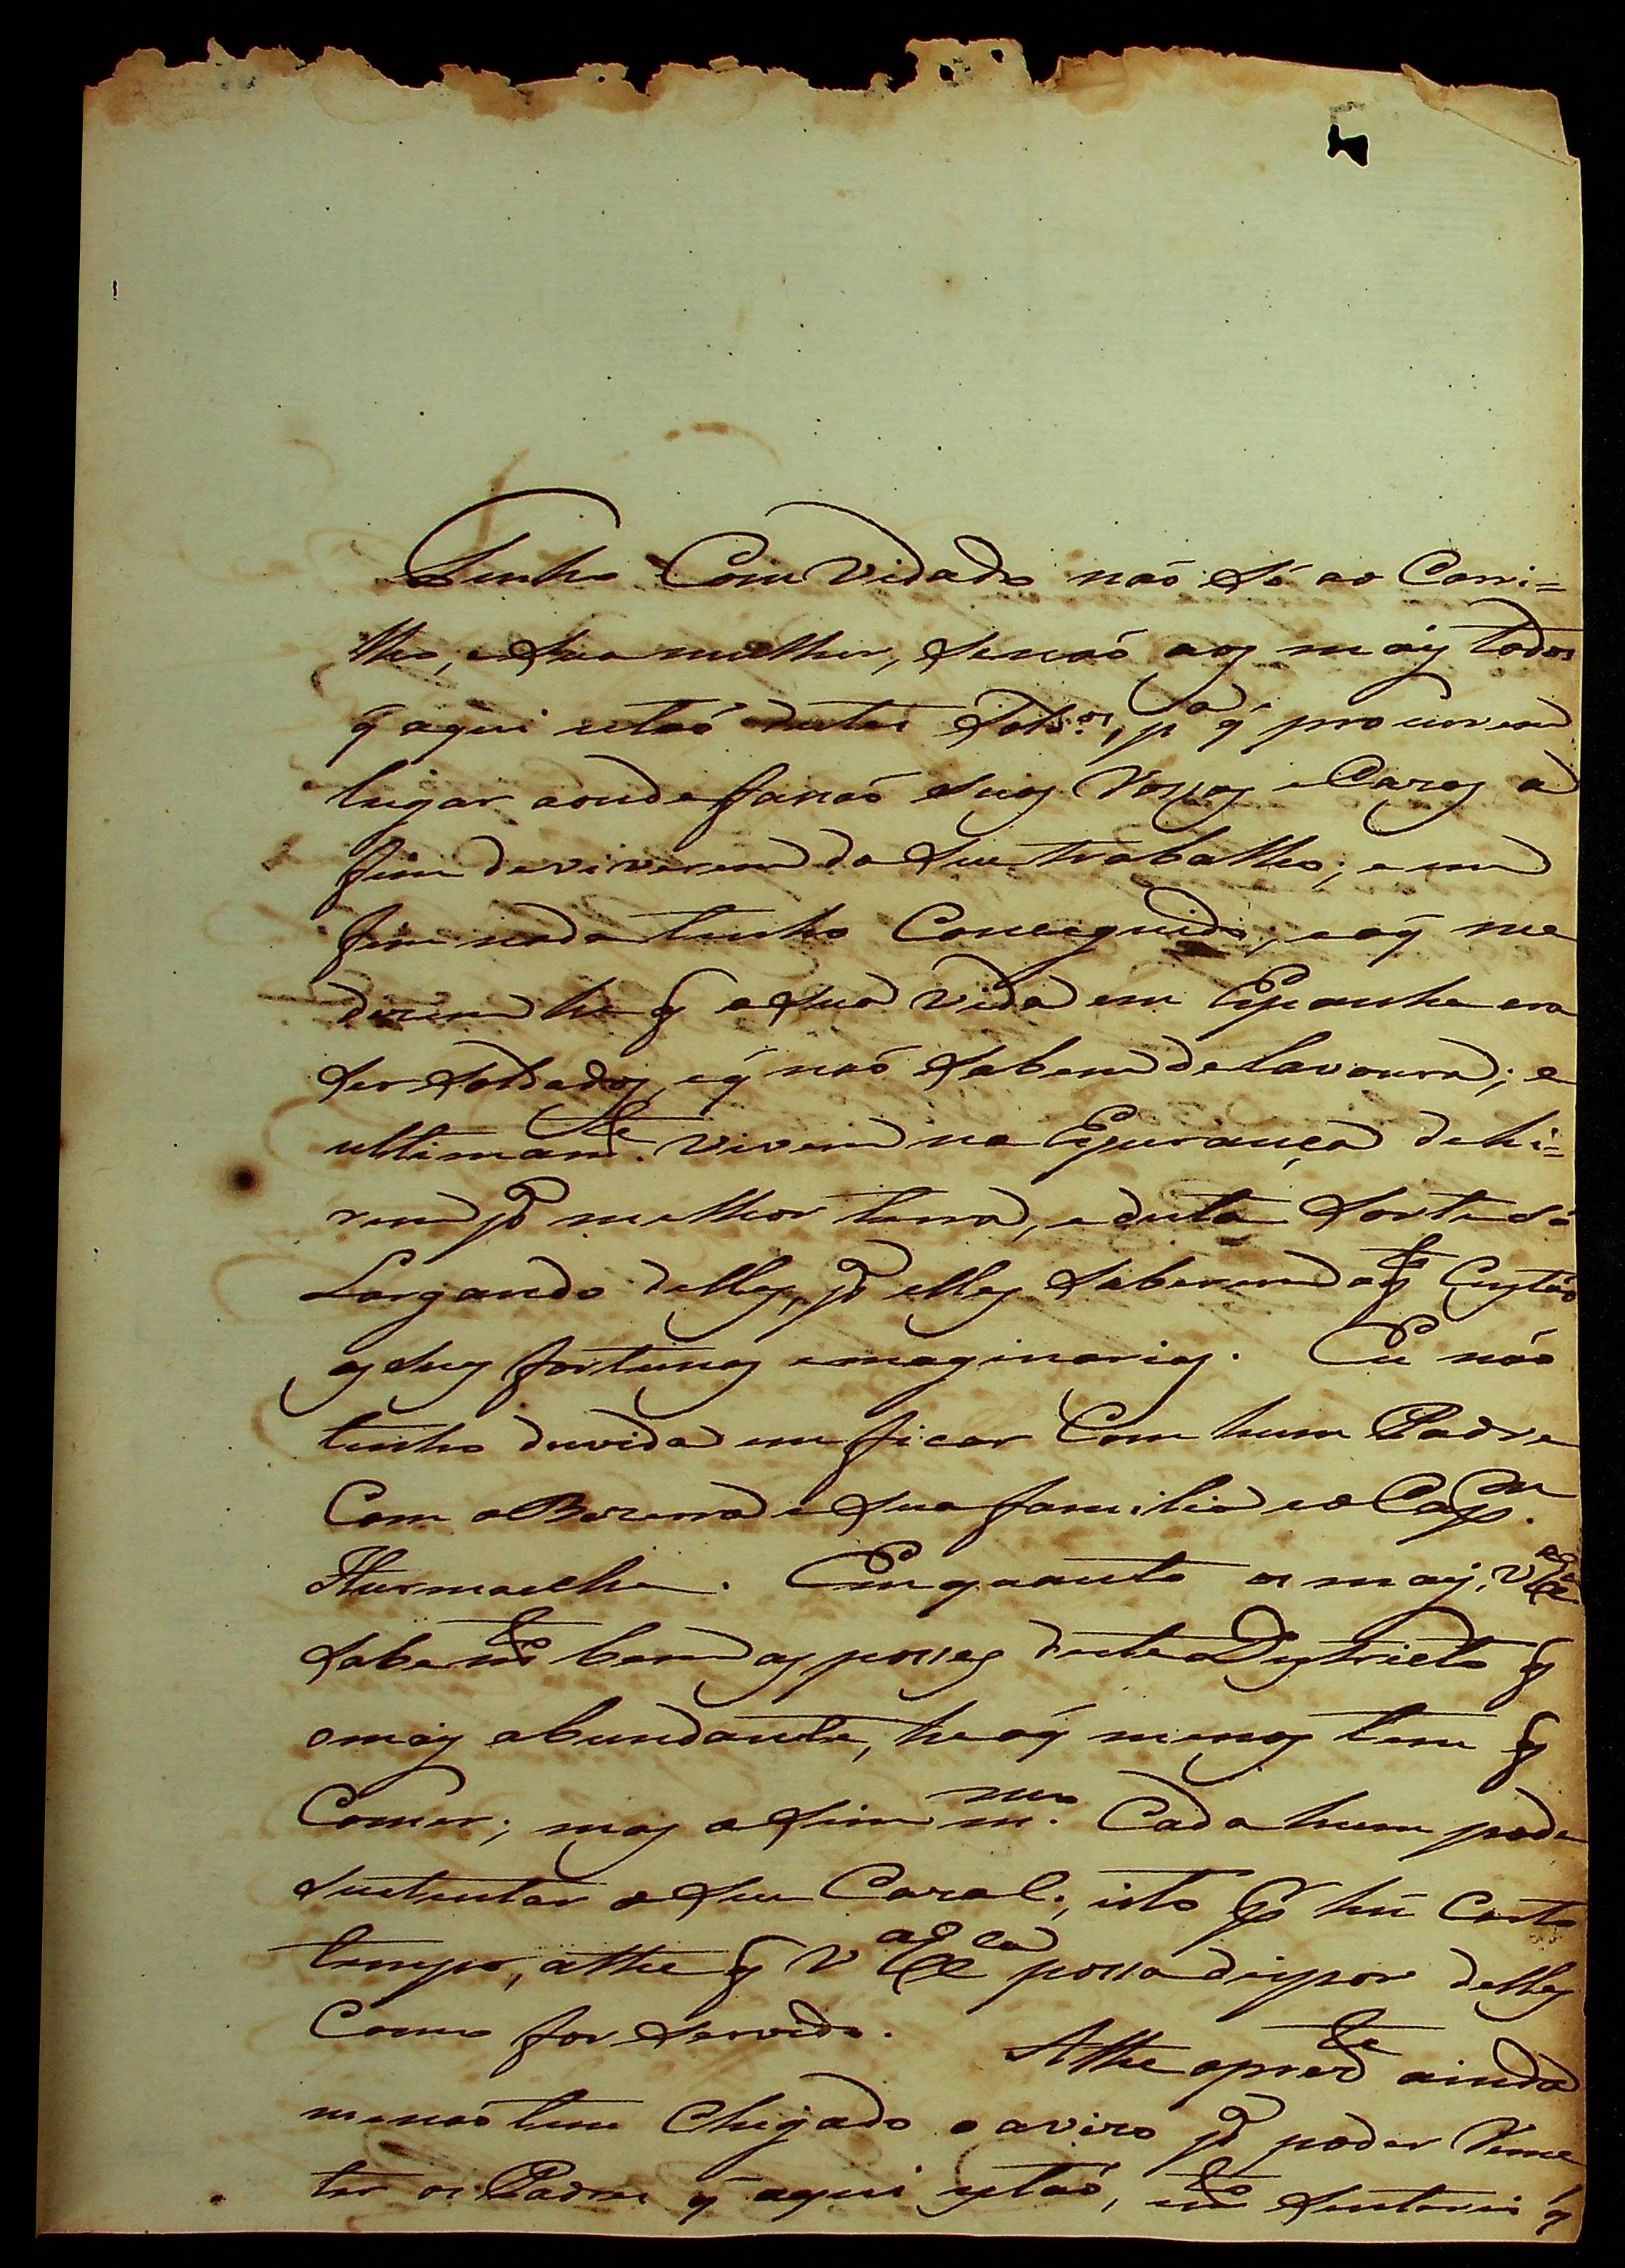 Tenho Comvidado naõ só ao Carri=
lho, e sua mulher, senaõ aos mais todos
q̃ aqui estaõ destes Sold.os, p.a q̃ procurem
lugar aonde façaõ suas Rossas e Cazas a
fim de viverem do seu trabalho; e em
fim nada tenho Conceguido; e o q̃ me
dizem he q̃ a sua vida em Espanha era
ser soldados, e q̃ naõ sabem de lavoura; e
ultimam.te vivem na Esperança de hi=
rem p.a melhor terra, e desta sorte só
Largando delles, p.a elles saberem o q.to Custaõ
as suas fortunas emaginarias. Eu naõ
tenho duvida em ficar Com hum Padre
Com o Bezerra e sua familia e o Cap.m
Hurmaeche. Emquanto os mais, V Ex.a
sabe m.to bem as posses deste Destricto q̃
o mais abundante, he o q̃ menos tem q̃
Comer; mas asim m.mo Cada hum pode
sustentar o seu Cazal; isto p.r hũ Certo
tempo, athe q̃ V Ex.ca possa dispor delles
Como for servido. Athe o prez.te ainda
me naõ tem Chegado o avizo p.a poder Reme
ter os Padres q̃ aqui estaõ, m.to sentirei q̃